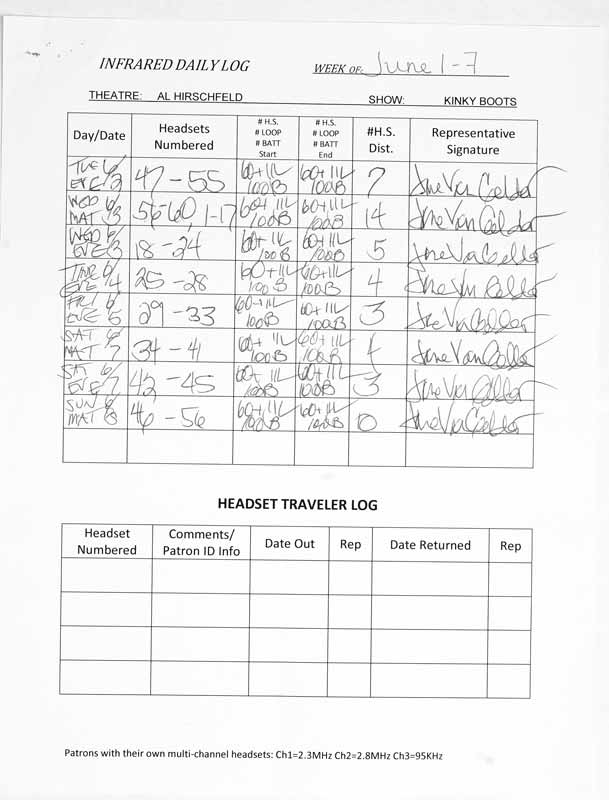 INFRARED DAILY LOG
WEEK OF: June 1-7
THEATRE: AL HIRSCHFELD SHOW: KINKY BOOTS
Day/Date Headsets Numbered # H.S. # LOOP # BATT Start # H.S. # LOOP # BATT End #H.S. Dist. Representative Signature
TUE 6/ EVE 47-55 60+ 11L 100B 60+ 11L 100B 7 Jane Van Gelder
WED 6/ MAT 3 56-60, 1-17 60+ 11L 100B 60+ 11L 100B 14 Jane Van Gelder
WED 6/ EVE 3 18-24 60+ 11L 100B 60+ 11L 100B 5 Jane Van Gelder
THUR 6/ EVE 4 25-28 60+ 11L 100B 60+ 11L 100B 4 Jane Van Gelder
FRI 6/ EVE 5 29-33 60+ 11L 100B 60+ 11L 100B 3 Jane Van Gelder
SAT 6/ MAT 7 34-41 60+ 11L 100B 60+ 11L 100B Jane Van Gelder
SAT 6/ EVE 7 42-45 60+ 11L 100B 60+ 11L 100B 3 Jane Van Gelder
SUN 6/ MAT 8 46-56 60+ 11L 100B 60+ 11L 100B 0 Jane Van Gelder
HEADSET TRAVELER LOG
Headset Numbered Comments/ Patron ID Info Date Out Rep Date Returned Rep
Patrons with their own multi-channel headsets: Ch1=2.3MHz Ch2=2.8MHz Ch3=95KHz